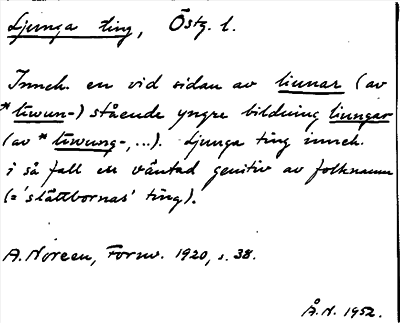 Ljunga ting, Östg. l.
Inneh. en vid sidan av liunar (av
*lewun-) stående yngre bildning liungar
(av *lewung-, ...). Ljunga ting inneh.
i så fall en väntad genitiv av folknamn
(= 'slättbornas' ting).
A. Noreen, Fornv. 1920, s. 38.
Å.N. 1952.